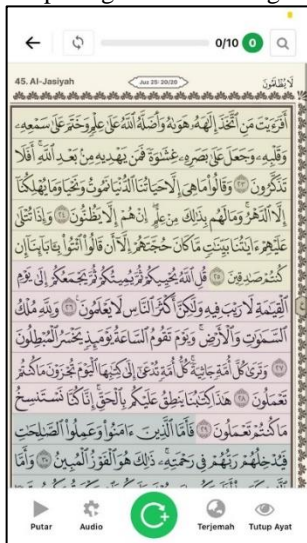 0/10 0
45. Al-Jasiyah
Juz 25: 20/20
لَا يُظْلَمُونَ
أَفَرَءَيْتَ مَنِ ٱتَّخَذَ إِلَٰهَهُۥ هَوَىٰهُ وَأَضَلَّهُ ٱللَّهُ عَلَىٰ عِلْمٍ وَخَتَمَ عَلَىٰ سَمْعِهِۦ
وَقَلْبِهِۦ وَجَعَلَ عَلَىٰ بَصَرِهِۦ غِشَٰوَةً فَمَن يَهْدِيهِ مِنۢ بَعْدِ ٱللَّهِ ۚ أَفَلَا
تَذَكَّرُونَ ٢٣ وَقَالُوا۟ مَا هِىَ إِلَّا حَيَاتُنَا ٱلدُّنْيَا نَمُوتُ وَنَحْيَا وَمَا يُهْلِكُنَآ
إِلَّا ٱلدَّهْرُ ۚ وَمَا لَهُم بِذَٰلِكَ مِنْ عِلْمٍ ۖ إِنْ هُمْ إِلَّا يَظُنُّونَ ٢٤ وَإِذَا تُتْلَىٰ
عَلَيْهِمْ ءَايَٰتُنَا بَيِّنَٰتٍ مَّا كَانَ حُجَّتَهُمْ إِلَّآ أَن قَالُوا۟ ٱئْتُوا۟ بِـَٔابَآئِنَآ إِن
كُنتُمْ صَٰدِقِينَ ٢٥ قُلِ ٱللَّهُ يُحْيِيكُمْ ثُمَّ يُمِيتُكُمْ ثُمَّ يَجْمَعُكُمْ إِلَىٰ يَوْمِ
ٱلْقِيَٰمَةِ لَا رَيْبَ فِيهِ وَلَٰكِنَّ أَكْثَرَ ٱلنَّاسِ لَا يَعْلَمُونَ ٢٦ وَلِلَّهِ مُلْكُ
ٱلسَّمَٰوَٰتِ وَٱلْأَرْضِ ۚ وَيَوْمَ تَقُومُ ٱلسَّاعَةُ يَوْمَئِذٍ يَخْسَرُ ٱلْمُبْطِلُونَ
٢٧ وَتَرَىٰ كُلَّ أُمَّةٍ جَاثِيَةً ۚ كُلُّ أُمَّةٍ تُدْعَىٰٓ إِلَىٰ كِتَٰبِهَا ٱلْيَوْمَ تُجْزَوْنَ مَا كُنتُمْ
تَعْمَلُونَ ٢٨ هَٰذَا كِتَٰبُنَا يَنطِقُ عَلَيْكُم بِٱلْحَقِّ ۚ إِنَّا كُنَّا نَسْتَنسِخُ
مَا كُنتُمْ تَعْمَلُونَ ٢٩ فَأَمَّا ٱلَّذِينَ ءَامَنُوا۟ وَعَمِلُوا۟ ٱلصَّٰلِحَٰتِ
فَيُدْخِلُهُمْ رَبُّهُمْ فِى رَحْمَتِهِۦ ۚ ذَٰلِكَ هُوَ ٱلْفَوْزُ ٱلْمُبِينُ ٣٠ وَأَمَّا
Putar Audio Terjemah Tutup Ayat